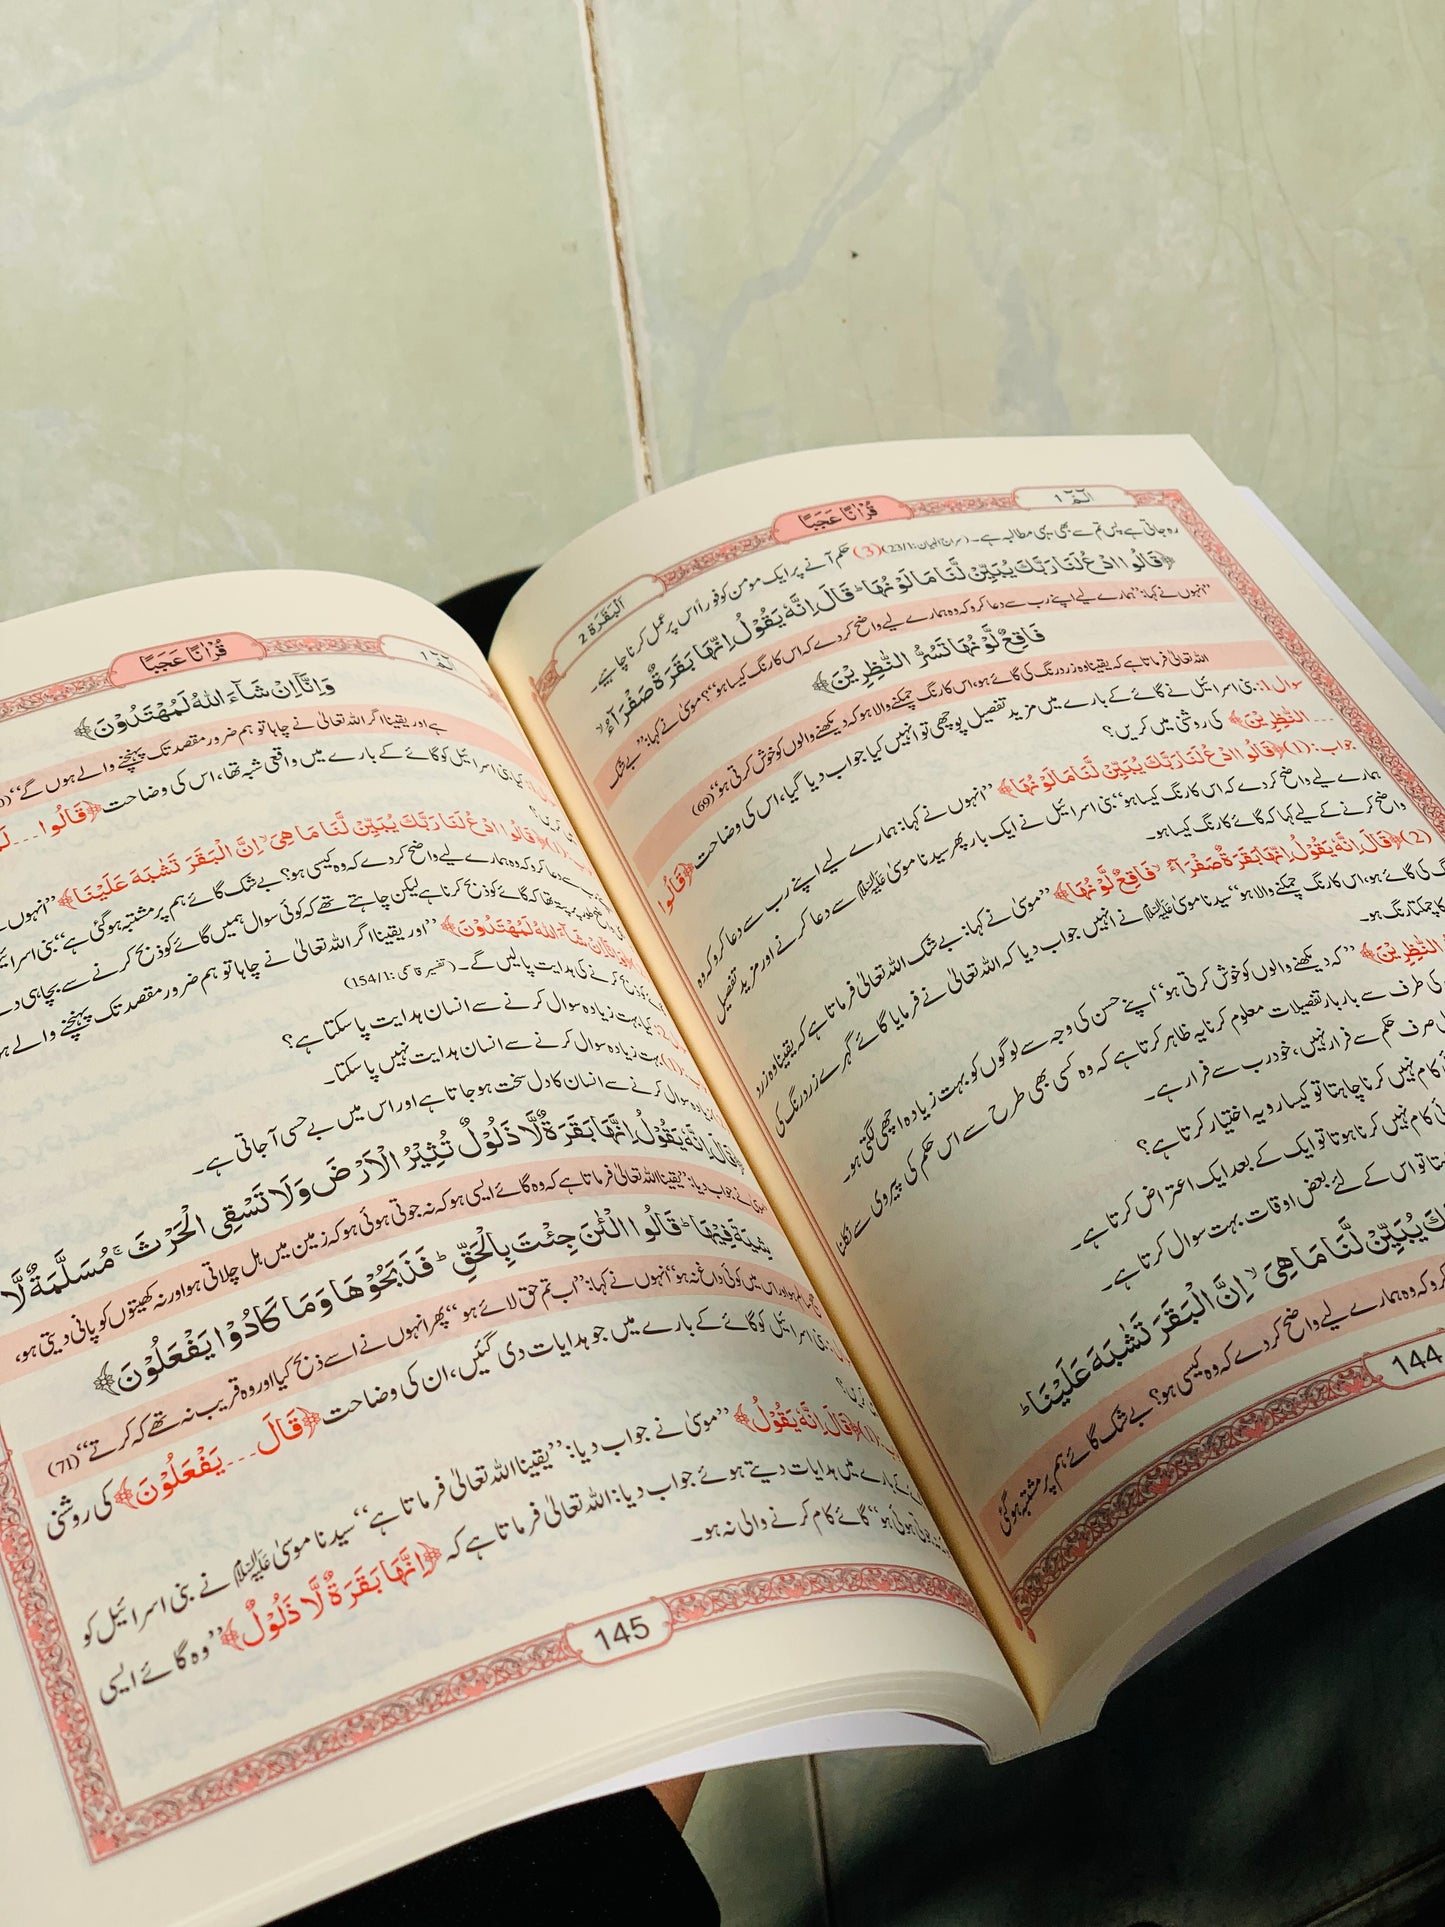 البقرة 2
قُرْاٰنًا عَجَبًا
الٓمّٓ 1
رہ جاتی ہے پس تم سے بھی یہی مطالبہ ہے۔ (3) حکم آنے پر ایک مومن کو فوراً اس پر عمل کرنا چاہیے۔
﴿قَالُوا ادْعُ لَنَا رَبَّكَ يُبَيِّنْ لَّنَا مَا لَوْنُهَا ؕ قَالَ اِنَّهٗ يَقُوْلُ اِنَّهَا بَقَرَةٌ صَفْرَآءُ ۙ
"انہوں نے کہا: "ہمارے لیے اپنے رب سے دعا کرو کہ وہ ہمارے لیے واضح کر دے کہ اس کا رنگ کیسا ہو"؟ موسیٰ نے کہا: "بے شک
فَاقِعٌ لَّوْنُهَا تَسُرُّ النّٰظِرِيْنَ﴾
اللہ تعالیٰ فرماتا ہے کہ یقیناً وہ زرد رنگ کی گائے ہو، اس کا رنگ چمکنے والا ہو کہ دیکھنے والوں کو خوش کرتی ہو" (69)
سوال 1: بنی اسرائیل نے گائے کے بارے میں مزید تفصیل پوچھی تو انہیں کیا جواب دیا گیا، اس کی وضاحت ﴿قَالُوا
... النّٰظِرِيْنَ﴾ کی روشنی میں کریں؟
جواب: (1) ﴿قَالُوا ادْعُ لَنَا رَبَّكَ يُبَيِّنْ لَّنَا مَا لَوْنُهَا﴾ "انہوں نے کہا: ہمارے لیے اپنے رب سے دعا کرو کہ وہ
ہمارے لیے واضح کر دے کہ اس کا رنگ کیسا ہو" بنی اسرائیل نے ایک بار پھر سیدنا موسیٰ علیہ السلام سے دعا کرنے اور مزید تفصیل
واضح کرنے کے لیے کہا کہ گائے کا رنگ کیسا ہو۔
(2) ﴿قَالَ اِنَّهٗ يَقُوْلُ اِنَّهَا بَقَرَةٌ صَفْرَآءُ ۙ فَاقِعٌ لَّوْنُهَا﴾ "موسیٰ نے کہا: بے شک اللہ تعالیٰ فرماتا ہے کہ یقیناً وہ زرد
گ کی گائے ہو، اس کا رنگ چمکنے والا ہو" سیدنا موسیٰ علیہ السلام نے انہیں جواب دیا کہ اللہ تعالیٰ نے فرمایا گائے گہرے زرد رنگ کی
کا چمکتا رنگ ہو۔
النّٰظِرِيْنَ﴾ "کہ دیکھنے والوں کو خوش کرتی ہو" اپنے حسن کی وجہ سے لوگوں کو بہت زیادہ اچھی لگتی ہو۔
کی طرف سے بار بار تفصیلات معلوم کرنا یہ ظاہر کرتا ہے کہ وہ کسی بھی طرح سے اس حکم کی پیروی سے نکلنا
صرف حکم سے فرار نہیں، خود رب سے فرار ہے۔
کام نہیں کرنا چاہتا تو کیسا رویہ اختیار کرتا ہے؟
ئی کام نہیں کرنا ہوتا تو ایک کے بعد ایک اعتراض کرتا ہے۔
تو اس کے لئے بعض اوقات بہت سوال کرتا ہے۔
يُبَيِّنْ لَّنَا مَا هِيَ ۙ اِنَّ الْبَقَرَ تَشٰبَهَ عَلَيْنَا ؕ
کرو کہ وہ ہمارے لیے واضح کر دے کہ وہ کیسی ہو؟ بے شک گائے ہم پر مشتبہ ہو گئی
144
قُرْاٰنًا عَجَبًا
الٓمّٓ 1
وَاِنَّآ اِنْ شَآءَ اللّٰهُ لَمُهْتَدُوْنَ﴾
ہے اور یقیناً اگر اللہ تعالیٰ نے چاہا تو ہم ضرور مقصد تک پہنچنے والے ہوں گے"
بنی اسرائیل کو گائے کے بارے میں واقعی شبہ تھا، اس کی وضاحت ﴿قَالُوا ...
(1) ﴿قَالُوا ادْعُ لَنَا رَبَّكَ يُبَيِّنْ لَّنَا مَا هِيَ ۙ اِنَّ الْبَقَرَ تَشٰبَهَ عَلَيْنَا﴾ "انہوں
سے دعا کرو کہ وہ ہمارے لیے واضح کر دے کہ وہ کیسی ہو؟ بے شک گائے ہم پر مشتبہ ہو گئی ہے" بنی اسرا
تھا کہ گائے کو ذبح کرنا ہے لیکن چاہتے تھے کہ کوئی سوال ہمیں گائے کو ذبح کرنے سے بچا ہی دے
اِنْ شَآءَ اللّٰهُ لَمُهْتَدُوْنَ﴾ "اور یقیناً اگر اللہ تعالیٰ نے چاہا تو ہم ضرور مقصد تک پہنچنے والے
ذبح کرنے کی ہدایت پا لیں گے۔ (تفسیر قاسمی: 154/1)
کیا بہت زیادہ سوال کرنے سے انسان ہدایت پا سکتا ہے؟
(1) بہت زیادہ سوال کرنے سے انسان ہدایت نہیں پا سکتا۔
زیادہ سوال کرنے سے انسان کا دل سخت ہو جاتا ہے اور اس میں بے حسی آ جاتی ہے۔
﴿قَالَ اِنَّهٗ يَقُوْلُ اِنَّهَا بَقَرَةٌ لَّا ذَلُوْلٌ تُثِيْرُ الْاَرْضَ وَلَا تَسْقِى الْحَرْثَ ۚ مُسَلَّمَةٌ لَّا
نے جواب دیا: "یقیناً اللہ تعالیٰ فرماتا ہے کہ وہ گائے ایسی ہو کہ نہ جوتی ہوئی ہو کہ زمین میں ہل چلاتی ہو اور نہ کھیتوں کو پانی دیتی ہو،
شِيَةَ فِيْهَا ؕ قَالُوا الْـٰٔنَ جِئْتَ بِالْحَقِّ ؕ فَذَبَحُوْهَا وَمَا كَادُوْا يَفْعَلُوْنَ﴾
ہو اور اس میں کوئی داغ نہ ہو" انہوں نے کہا: "اب تم حق لائے ہو" پھر انہوں نے اسے ذبح کیا اور وہ قریب نہ تھے کہ کرتے" (71)
بنی اسرائیل کو گائے کے بارے میں جو ہدایات دی گئیں، ان کی وضاحت ﴿قَالَ ... يَفْعَلُوْنَ﴾ کی روشنی
کریں؟
(1) ﴿قَالَ اِنَّهٗ يَقُوْلُ﴾ "موسیٰ نے جواب دیا: "یقیناً اللہ تعالیٰ فرماتا ہے" سیدنا موسیٰ علیہ السلام نے بنی اسرائیل کو
بارے میں ہدایات دیتے ہوئے جواب دیا: اللہ تعالیٰ فرماتا ہے کہ ﴿اِنَّهَا بَقَرَةٌ لَّا ذَلُوْلٌ﴾ "وہ گائے ایسی
جوتی ہوئی ہو" گائے کام کرنے والی نہ ہو۔
145